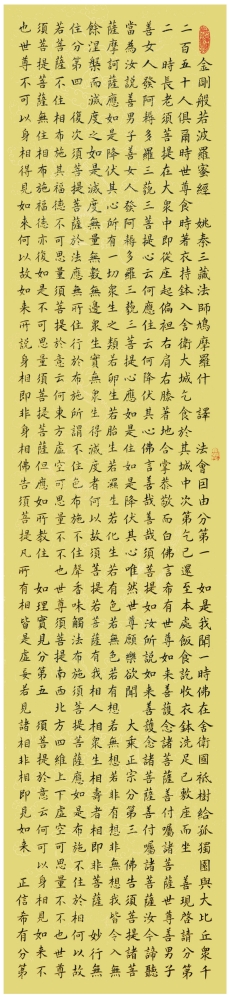 金剛般若波羅蜜經 姚秦三藏法師鳩摩羅什 譯 法會因由分第一 如是我聞一時佛在舍衛國祇樹給孤獨園與大比丘眾千
二百五十人俱爾時世尊食時著衣持鉢入舍衛大城乞食於其城中次第乞已還至本處飯食訖收衣鉢洗足已敷座而坐 善現啓請分第
二 時長老須菩提在大眾中即從座起偏袒右肩右膝著地合掌恭敬而白佛言希有世尊如來善護念諸菩薩善付囑諸菩薩世尊善男子
善女人發阿耨多羅三藐三菩提心云何應住云何降伏其心佛言善哉善哉須菩提如汝所說如來善護念諸菩薩善付囑諸菩薩汝今諦聽
當為汝說善男子善女人發阿耨多羅三藐三菩提心應如是住如是降伏其心唯然世尊願樂欲聞 大乘正宗分第三 佛告須菩提諸菩
薩摩訶薩應如是降伏其心所有一切眾生之類若卵生若胎生若濕生若化生若有色若無色若有想若無想若非有想非無想我皆令入無
餘涅槃而滅度之如是滅度無量無數無邊眾生實無眾生得滅度者何以故須菩提若菩薩有我相人相眾生相壽者相即非菩薩 妙行無
住分第四 復次須菩提菩薩於法應無所住行於布施所謂不住色布施不住聲香味觸法布施須菩提菩薩應如是布施不住於相何以故
若菩薩不住相布施其福德不可思量須菩提於意云何東方虛空可思量不不也世尊須菩提南西北方四維上下虛空可思量不不也世尊
須菩提菩薩無住相布施福德亦復如是不可思量須菩提菩薩但應如所教住 如理實見分第五 須菩提於意云何可以身相見如來不
也世尊不可以身相得見如來何以故如來所說身相即非身相佛告須菩提凡所有相皆是虛妄若見諸相非相即見如來 正信希有分第